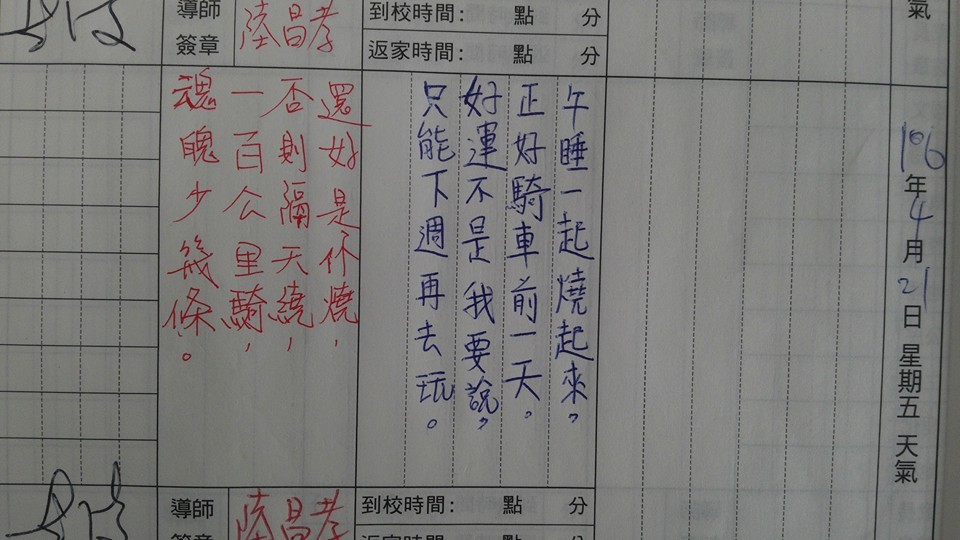 氣
106年4月21日 星期五 天氣
午睡一起燒起來，
正好騎車前一天。
好運不是我要說，
只能下週再去玩。
到校時間: 點 分
返家時間: 點 分
導師簽章
陸昌孝
還好是你燒，
否則隔天繞，
一百公里騎，
魂魄少幾條。
到校時間: 點 分
返家時間: 點 分
導師簽章
陸昌孝